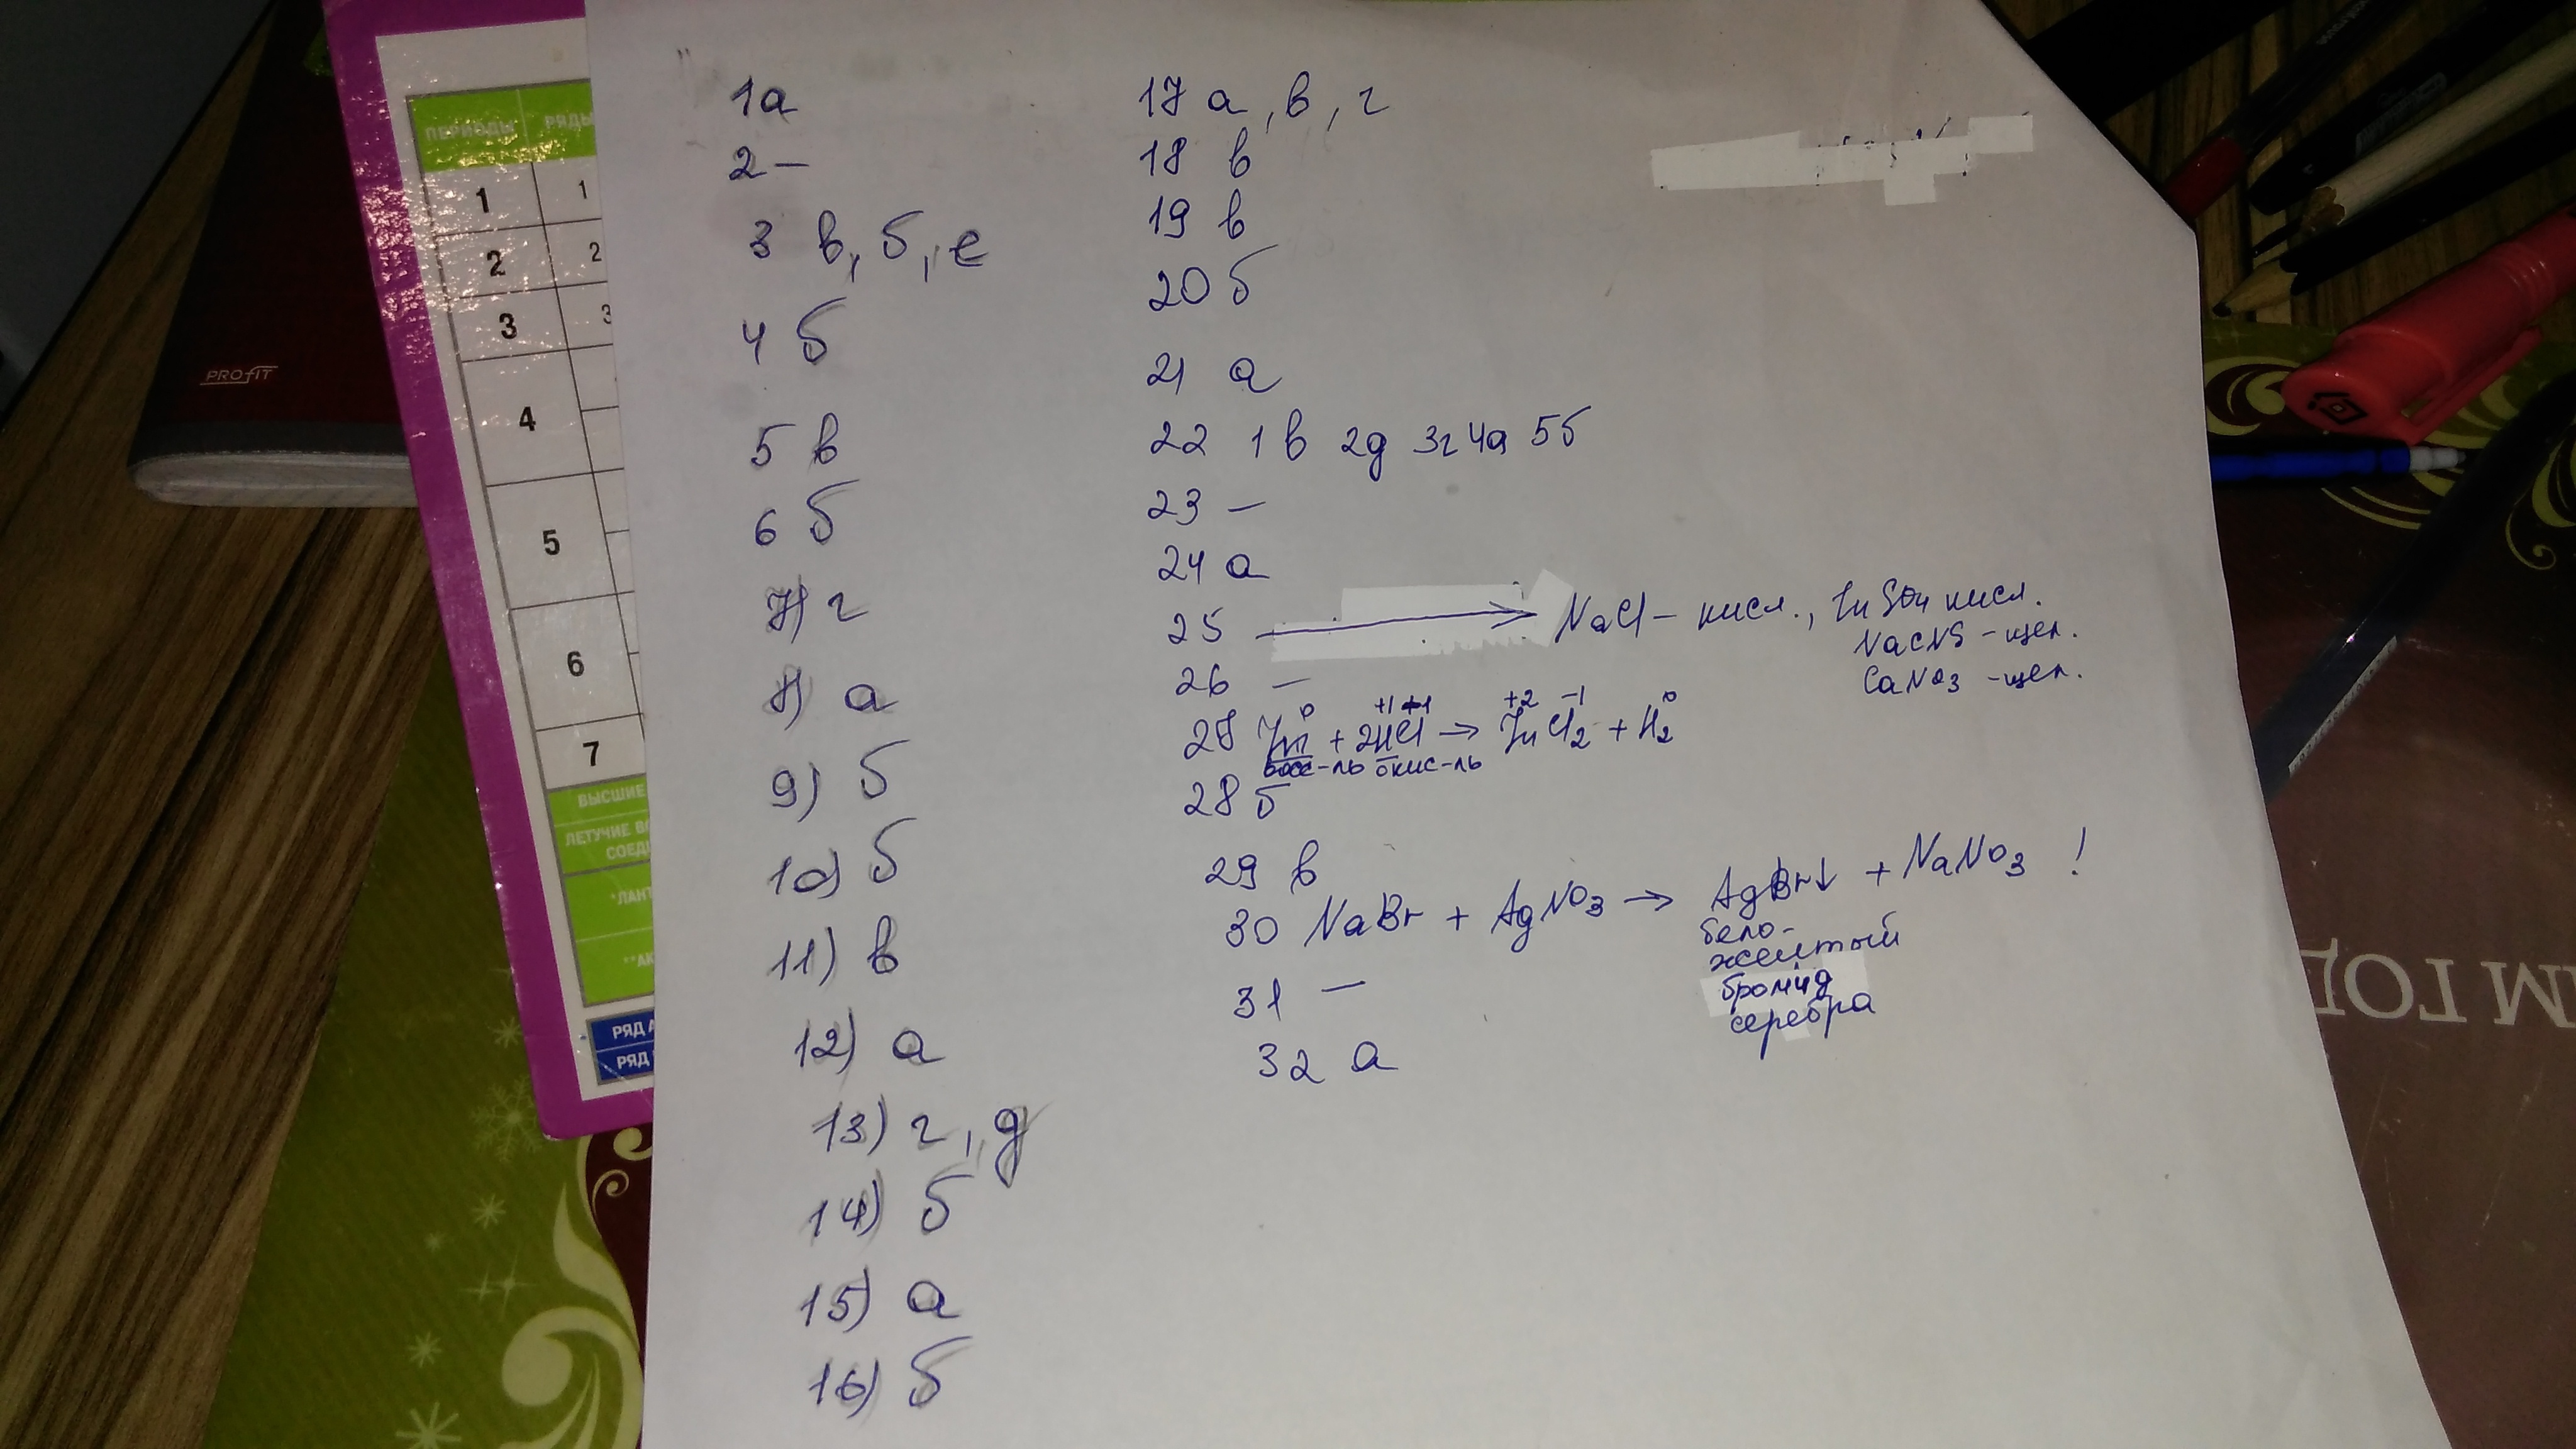 ПЕРИОДЫ РЯДЫ
1 1
2 2
3 3
4
5
6
7
ВЫСШИЕ
ЛЕТУЧИЕ
СОЕДИ
*ЛАНТ
**АК
РЯД А
РЯД
PROFIT
1 а
2 –
3 в, б, е
4 б
5 в
6 б
7) г
8) а
9) б
10) б
11) в
12) а
13) г, д
14) б
15) а
16) б
17 а, в, г
18 в
19 в
20 б
21 а
22 1 в 2д 3г 4а 5б
23 –
24 а
25 → NaCl – кисл., ZnSO4 кисл.
NaCNS – щел.
CaNO3 – щел.
26 –
0 +1 -1 +2 -1 0
27 Zn + 2HCl → ZnCl2 + H2
восс-ль окис-ль
28 б
29 в
30 NaBr + AgNO3 → AgBr↓ + NaNO3 !
бело-
желтый
бромид
серебра
31 –
32 а
М ГОД